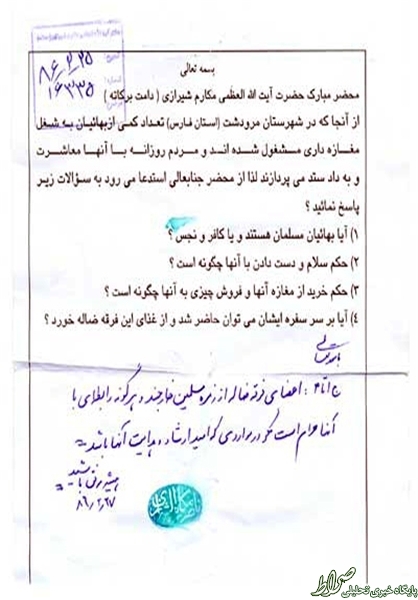 ۸۶/۲/۲۵
۱۶۳۳۵
بسمه تعالی
محضر مبارک حضرت آیت الله العظمی مکارم شیرازی ( دامت برکاته )
از آنجا که در شهرستان مرودشت (استان فارس) تعداد کمی ازبهائیان به شغل
مغازه داری مشغول شده اند و مردم روزانه با آنها معاشرت
و به داد ستد می پردازند لذا از محضر جنابعالی استدعا می رود به سؤالات زیر
پاسخ نمائید ؟
۱) آیا بهائیان مسلمان هستند و یا کافر و نجس ؟
۲) حکم سلام و دست دادن با آنها چگونه است ؟
۳) حکم خرید از مغازه آنها و فروش چیزی به آنها چگونه است ؟
۴) آیا بر سر سفره ایشان می توان حاضر شد و از غذای این فرقه ضاله خورد ؟
باسمه تعالی
ج ۱ تا ۴ : اعضای فرقه ضاله از زمره مسلمین خارجند و هر گونه رابطه ای با
آنها حرام است مگر در مواردی که امید ارشاد و هدایت آنها باشد
همیشه موفق باشید
۸۶/۲/۲۷
صراط
پایگاه خبری تحلیلی